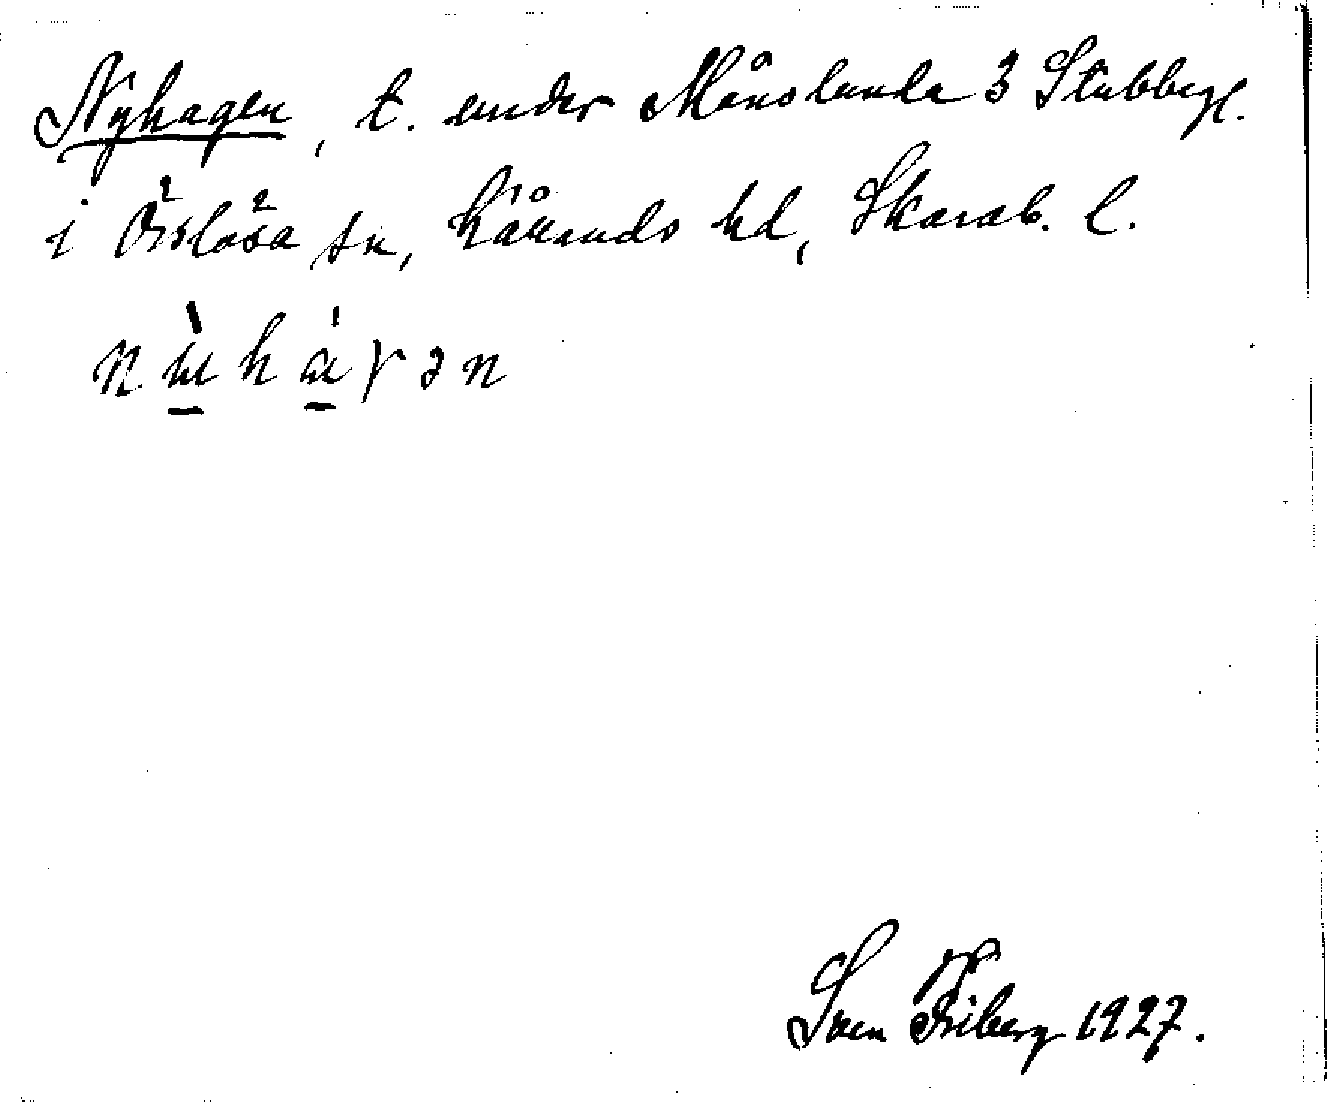 Nyhagen, t. under Månslunda 3 Stubbeg.
i Örslösa sn, Kållands hd, Skarab. l.
Sven Friberg 1927.